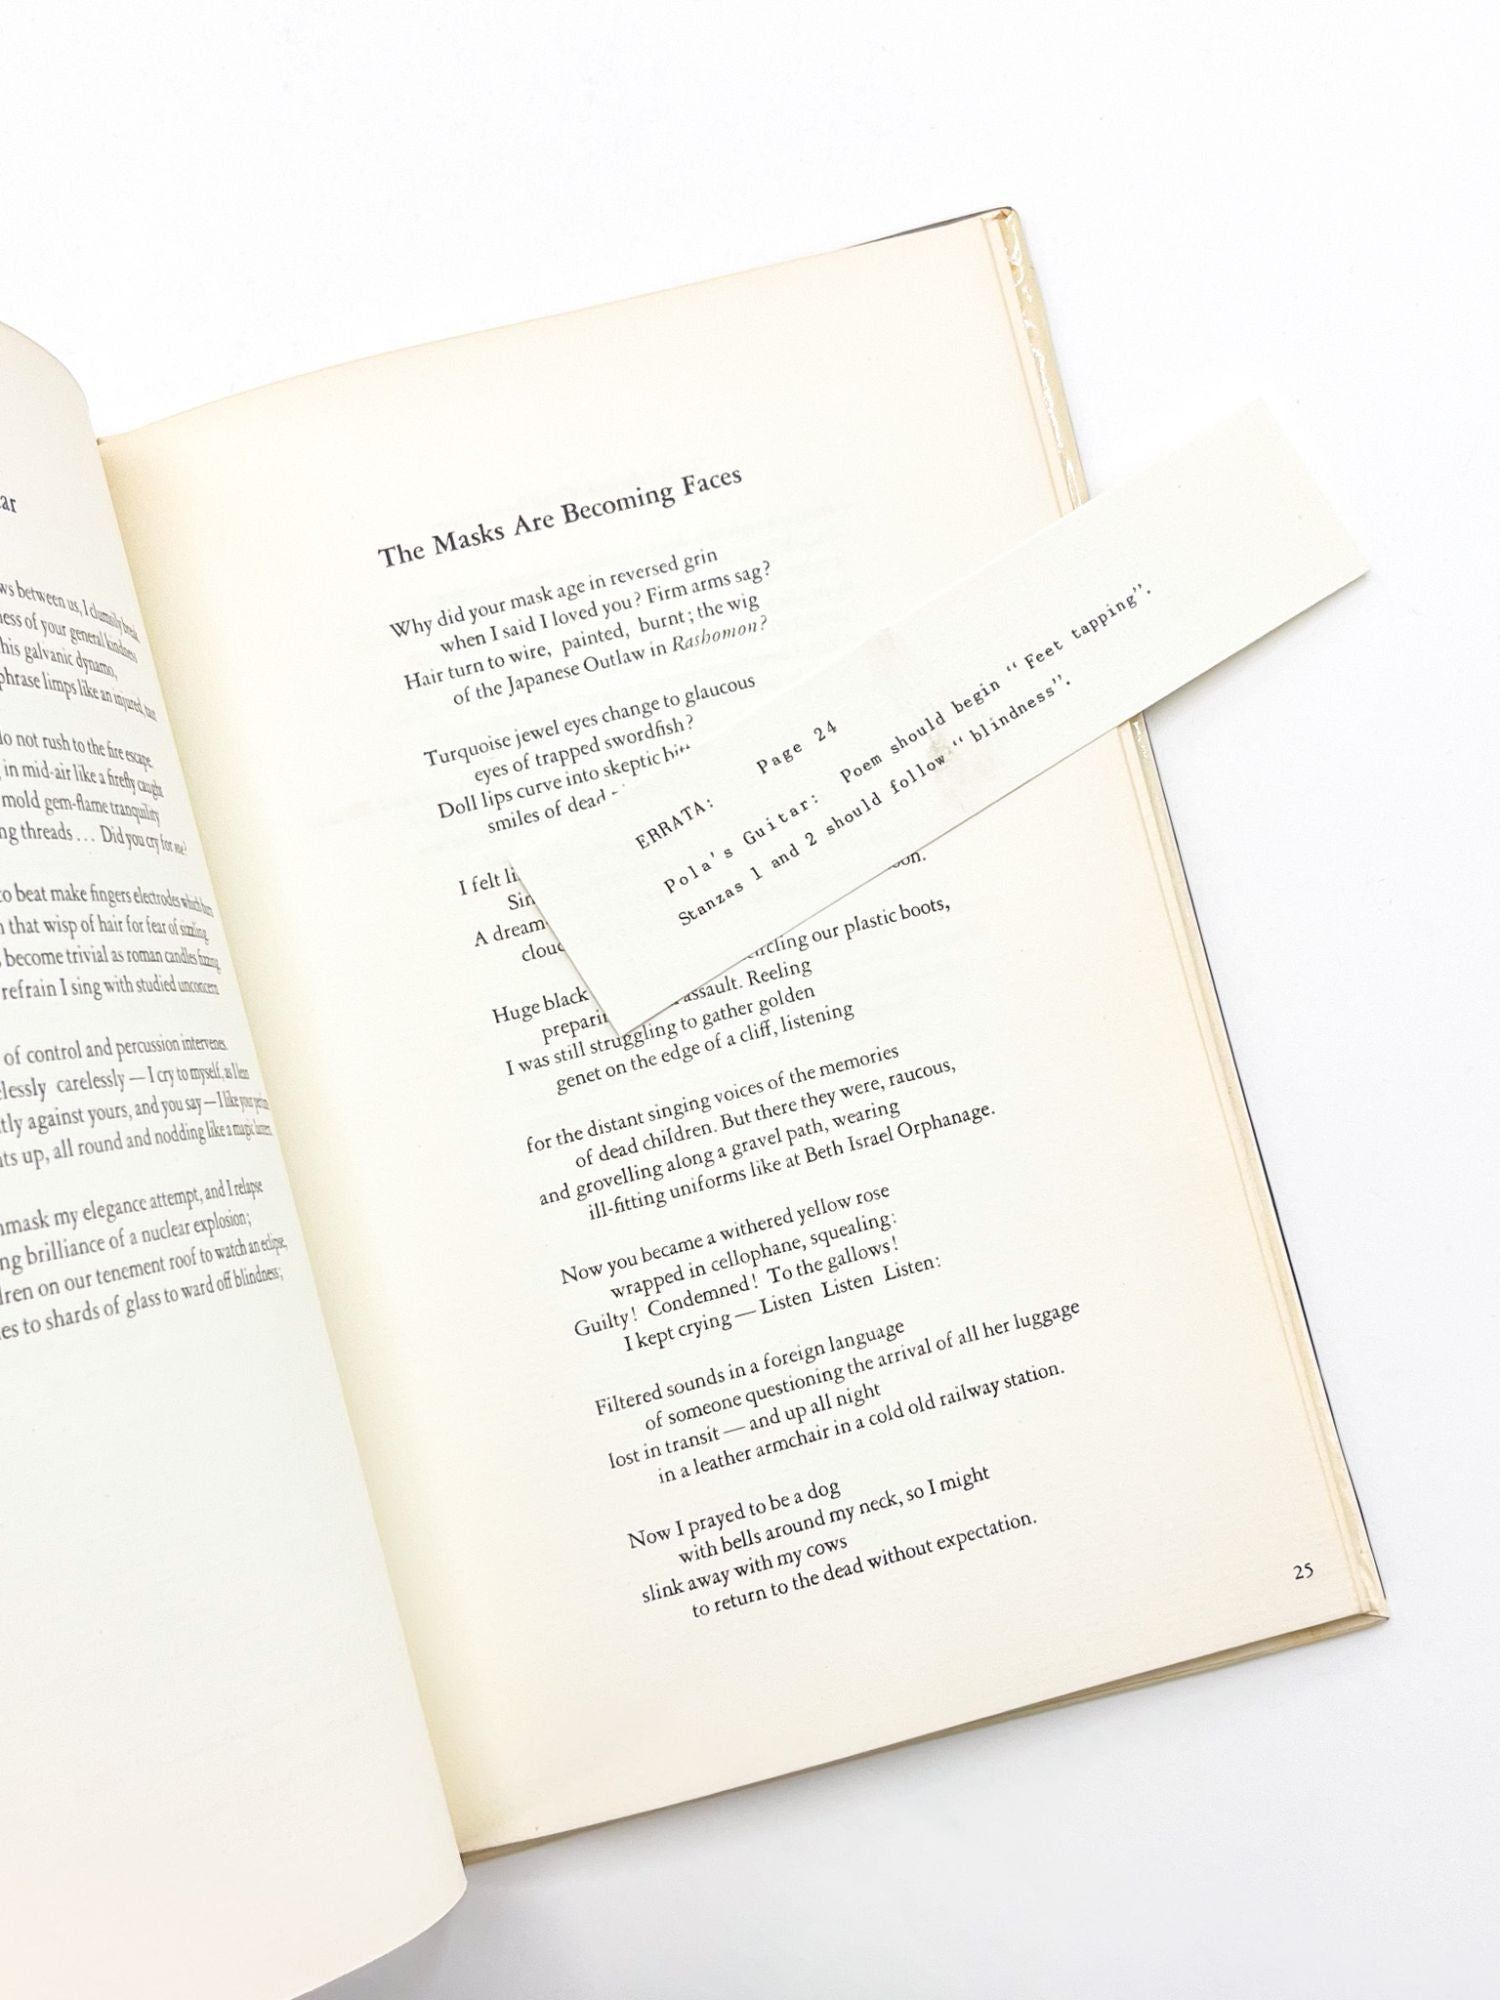 ar
ws between us, I clumsily break
ness of your general kindness
his galvanic dynamo,
phrase limps like an injured,
do not rush to the fire escape
in mid-air like a firefly caught
mold gem-flame tranquility
ng threads ... Did you cry for me?
to beat make fingers electrodes which burn
that wisp of hair for fear of sizzling.
become trivial as roman candles fizzing,
refrain I sing with studied unconcern
of control and percussion intervenes.
lessly carelessly — I cry to myself, as I lean
tly against yours, and you say — I like your
ts up, all round and nodding like a magic lantern.
nmask my elegance attempt, and I relapse
ng brilliance of a nuclear explosion;
dren on our tenement roof to watch an eclipse,
es to shards of glass to ward off blindness;
The Masks Are Becoming Faces
Why did your mask age in reversed grin
when I said I loved you? Firm arms sag?
Hair turn to wire, painted, burnt; the wig
of the Japanese Outlaw in Rashomon?
Turquoise jewel eyes change to glaucous
eyes of trapped swordfish?
Doll lips curve into skeptic
smiles of dead
I felt
Sin
A dream
cloud
on.
circling our plastic boots,
Huge black
assault. Reeling
I was still struggling to gather golden
genet on the edge of a cliff, listening
for the distant singing voices of the memories
of dead children. But there they were, raucous,
and grovelling along a gravel path, wearing
ill-fitting uniforms like at Beth Israel Orphanage.
Now you became a withered yellow rose
wrapped in cellophane, squealing:
Guilty! Condemned! To the gallows!
I kept crying — Listen Listen Listen:
Filtered sounds in a foreign language
of someone questioning the arrival of all her luggage
lost in transit — and up all night
in a leather armchair in a cold old railway station.
Now I prayed to be a dog
with bells around my neck, so I might
slink away with my cows
to return to the dead without expectation.
25
ERRATA: Page 24
Pola's Guitar: Poem should begin "Feet tapping".
Stanzas 1 and 2 should follow "blindness".